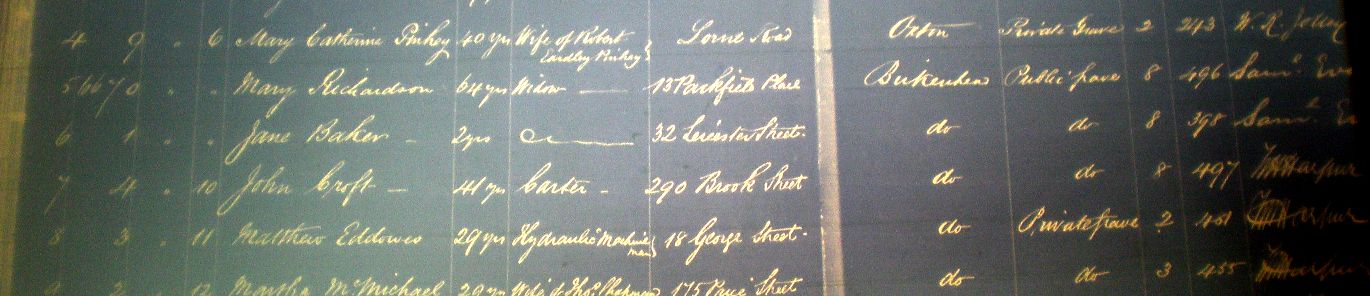 4 9 " 6 Mary Catherine Pinkey 40 yrs Wife of Robert Eardley Pinkey Lorne Road Oxton Private Grave 2 243 W. R. Jolley
5 6670 " " Mary Richardson 64 yrs Widow — 13 Parkfield Place Birkenhead Public grave 8 496 Saml.
6 1 " " Jane Baker - 2 yrs — 32 Leicester Street. do do 8 398 Saml.
7 4 " 10 John Croft - 41 yrs Carter - 290 Brook Street do do 8 497
8 3 " 11 Matthew Eddowes 29 yrs Hydraulic Machine man 18 George Street. do Private grave 2 451
9 2 " 12 Martha McMichael 29 yrs Wife of Thos. Chapman 175 Price Street do do 3 455